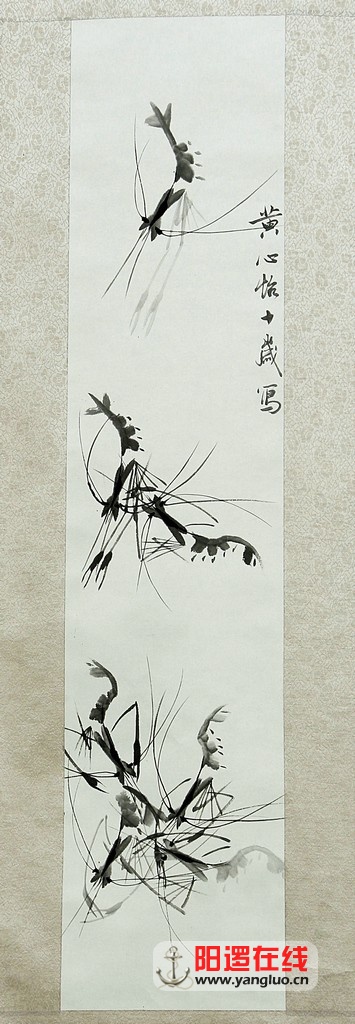 黄心怡十歲写
阳逻在线
www.yangluo.cn